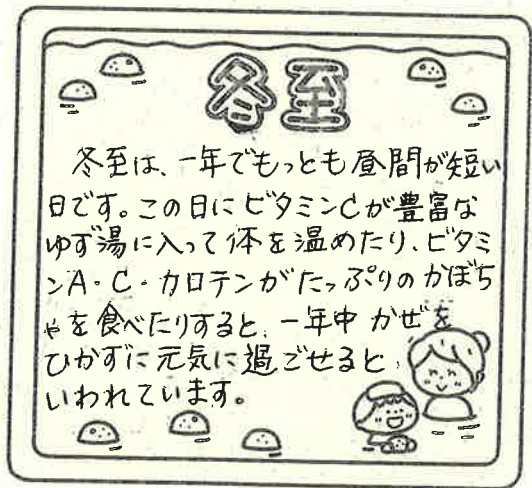 冬至
冬至は、一年でもっとも昼間が短い
日です。この日にビタミンCが豊富な
ゆず湯に入って体を温めたり、ビタミ
ンA・C・カロテンがたっぷりのかぼち
ゃを食べたりすると、一年中かぜを
ひかずに元気に過ごせると
いわれています。